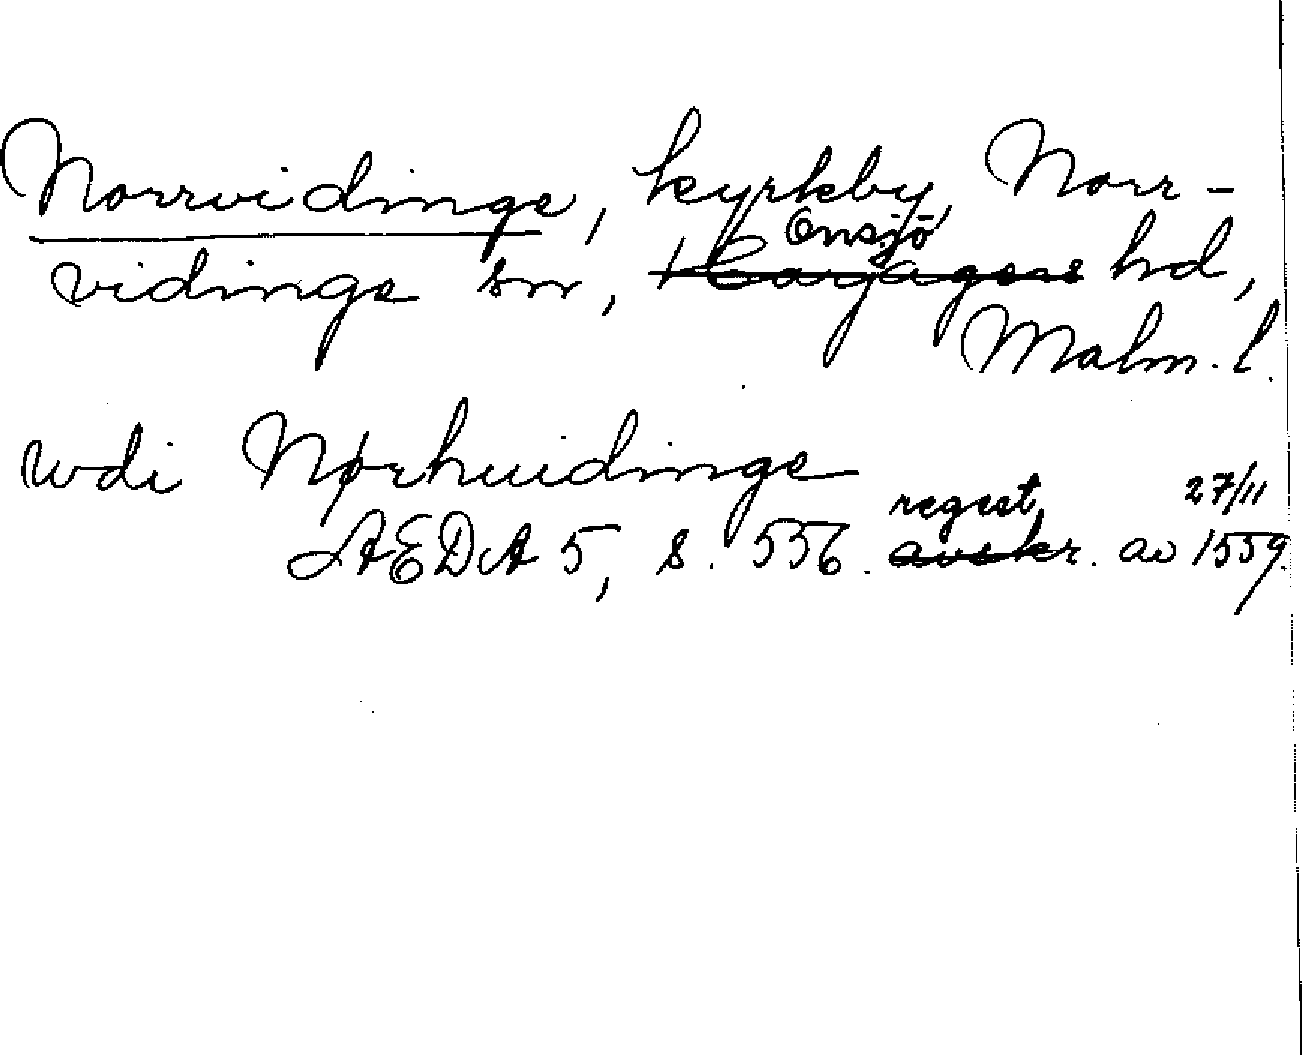 Norrvidinge, kyrkby, Norr-
Onsjö
vidinge sn, Harjagers hd,
Malm. l.
wdi Nørhuidinge
regest 27/11
ÆDA 5, s. 556. avskr. av 1559.